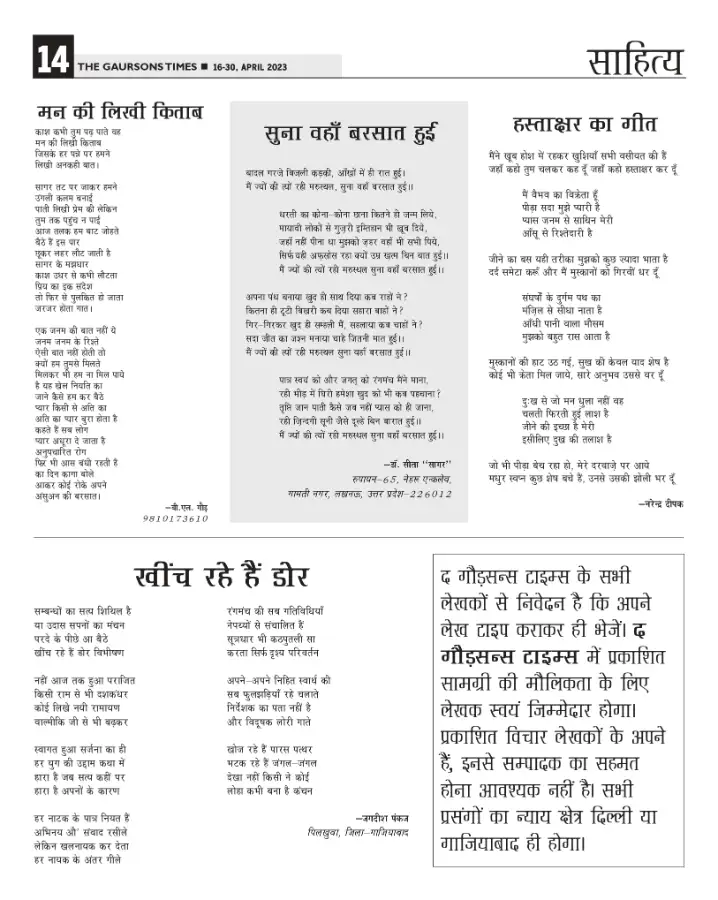 14
THE GAURSONS TIMES ■ 16-30, APRIL 2023
साहित्य
मन की लिखी किताब
काश कभी तुम पढ़ पाते वह
मन की लिखी किताब
जिसके हर पन्ने पर हमने
लिखी अनकही बात।
सागर तट पर जाकर हमने
उंगली कलम बनाई
पाती लिखी प्रेम की लेकिन
तुम तक पहुंच न पाई
आज तलक हम बाट जोहते
बैठे हैं इस पार
छूकर लहर लौट जाती है
सागर के मझधार
काश उधर से कभी लौटता
प्रिय का इक संदेश
तो फिर से पुलकित हो जाता
जरजर होता गात।
एक जनम की बात नहीं ये
जनम जनम के रिश्ते
ऐसी बात नहीं होती तो
क्यों हम तुमसे मिलते
मिलकर भी हम ना मिल पाये
है यह खेल नियति का
जाने कैसे हम कर बैठे
प्यार किसी से अति का
अति का प्यार बुरा होता है
कहते हैं सब लोग
प्यार अधूरा दे जाता है
अनुपचारित रोग
फिर भी आस बंधी रहती है
का दिन कागा बोले
आकर कोई रोके अपने
अंसुअन की बरसात।
–बी.एल. गौड़
9810173610
सुना वहाँ बरसात हुई
बादल गरजे़ बिजली कड़की, आँखों में ही रात हुई।
मैं ज्यों की त्यों रही मरुस्थल, सुना वहाँ बरसात हुई।।
धरती का कोना-कोना छाना कितने हो जन्म लिये,
मायावी लोकों से गुज़री इम्तिहान भी खूब दिये,
जहाँ नहीं पीना था मुझको ज़हर वहाँ भी सभी पिये,
सिर्फ़ यही अफ़सोस रहा क्यों उम्र खत्म बिन बात हुई।।
मैं ज्यों की त्यों रही मरुस्थल सुना वहाँ बरसात हुई।।
अपना पंथ बनाया खुद ही साथ दिया कब राहों ने?
कितना ही टूटी बिखरी कब दिया सहारा बाहों ने?
गिर-गिरकर खुद ही सम्हली मैं, सहलाया कब चाहों ने?
सदा जीत का जश्न मनाया चाहे जितनी मात हुई।।
मैं ज्यों की त्यों रही मरुस्थल सुना वहाँ बरसात हुई।।
पात्र स्वयं को और जगत् को रंगमंच मैंने माना,
रही भीड़ में घिरी हमेशा खुद को भी कब पहचाना?
तृप्ति जान पाती कैसे जब नहीं प्यास को ही जाना,
रही ज़िन्दगी सूनी जैसे दूल्हे बिन बारात हुई।।
मैं ज्यों की त्यों रही मरुस्थल सुना वहाँ बरसात हुई।।
–डॉ. सीता "सागर"
रुपायन-65, नेहरू एन्कलेव,
गामती नगर, लखनऊ, उत्तर प्रदेश-226012
हस्ताक्षर का गीत
मैंने खूब होश में रहकर खुशियाँ सभी वसीयत की हैं
जहाँ कहो तुम चलकर कह दूँ जहाँ कहो हस्ताक्षर कर दूँ
मैं वैभव का विक्रेता हूँ
पीड़ा सदा मुझे प्यारी है
प्यास जनम से साथिन मेरी
आँसू से रिश्तेदारी है
जीने का बस यही तरीका मुझको कुछ ज़्यादा भाता है
दर्द समेटा करूँ और मैं मुस्कानों को गिरवीं धर दूँ
संघर्षों के दुर्गम पथ का
मंज़िल से सीधा नाता है
आँधी पानी वाला मौसम
मुझको बहुत रास आता है
मुस्कानों की हाट उठ गई, सुख की केवल याद शेष है
कोई भी क्रेता मिल जाये, सारे अनुभव उससे वर दूँ
दुःख से जो मन धुला नहीं वह
चलती फिरती हुई लाश है
जीने की इच्छा है मेरी
इसीलिए दुख की तलाश है
जो भी पीड़ा बेच रहा हो, मेरे दरवाज़े पर आये
मधुर स्वप्न कुछ शेष बचे हैं, उनसे उसकी झोली भर दूँ
–नरेन्द्र दीपक
खींच रहे हैं डोर
सम्बन्धों का सत्य शिथिल है
या उदास सपनों का मंचन
परदे के पीछे आ बैठे
खींच रहे हैं डोर विभीषण
नहीं आज तक हुआ पराजित
किसी राम से भी दशकंधर
कोई लिखे नयी रामायण
वाल्मीकि जी से भी बढ़कर
स्वागत हुआ सर्जना का ही
हर युग की उद्दाम कथा में
हारा है जब सत्य कहीं पर
हारा है अपनों के कारण
हर नाटक के पात्र नियत हैं
अभिनय औ' संवाद रसीले
लेकिन खलनायक कर देता
हर नायक के अंतर गीले
रंगमंच की सब गतिविधियाँ
नेपथ्यों से संचालित हैं
सूत्रधार भी कठपुतली सा
करता सिर्फ दृश्य परिवर्तन
अपने-अपने निहित स्वार्थ की
सब फुलझड़ियाँ रहे चलाते
निर्देशक का पता नहीं है
और विदूषक लोरी गाते
खोज रहे हैं पारस पत्थर
भटक रहे हैं जंगल-जंगल
देखा नहीं किसी ने कोई
लोहा कभी बना है कंचन
–जगदीश पंकज
पिलखुवा, जिला-गाजियाबाद
द गौड़सन्स टाइम्स के सभी
लेखकों से निवेदन है कि अपने
लेख टाइप कराकर ही भेजें। द
गौड़सन्स टाइम्स में प्रकाशित
सामग्री की मौलिकता के लिए
लेखक स्वयं जिम्मेदार होगा।
प्रकाशित विचार लेखकों के अपने
हैं, इनसे सम्पादक का सहमत
होना आवश्यक नहीं है। सभी
प्रसंगों का न्याय क्षेत्र दिल्ली या
गाजियाबाद ही होगा।